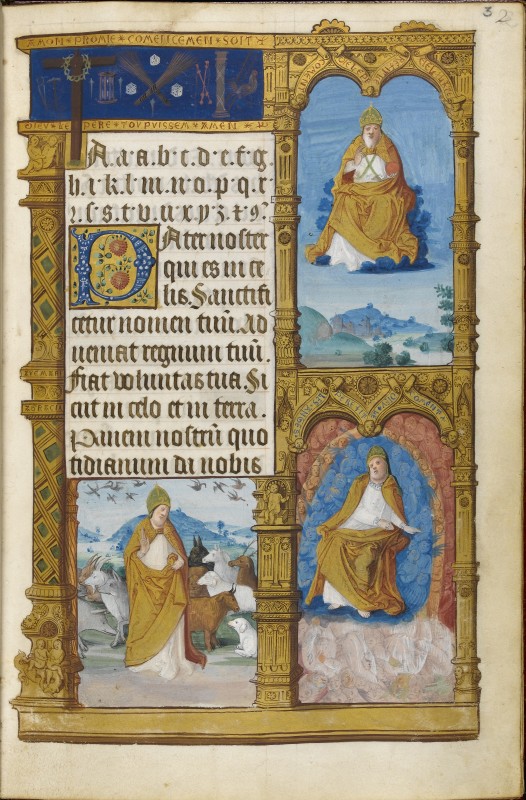 3 2
MON PROMIE COMENCEMEN SOIT
DIEV LE PERE TOVPVISSEM AMEN
A.a.a.b.c.d.e.f.g.
h.i.k.l.m.n.o.p.q.r
ꝛ.ſ.s.t.v.u.x.y.z.⁊.ꝯ.
Pater noster
qui es in ce
lis. Sanctifi
cetur nomen tuū. Ad
ueniat regnum tuū.
Fiat voluntas tua. Si
cut in celo et in terra.
Panem nostrū quo
tidianum da nobis